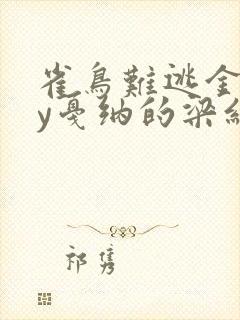 雀鳥難逃金
y戛纳的梁紅
祁隽